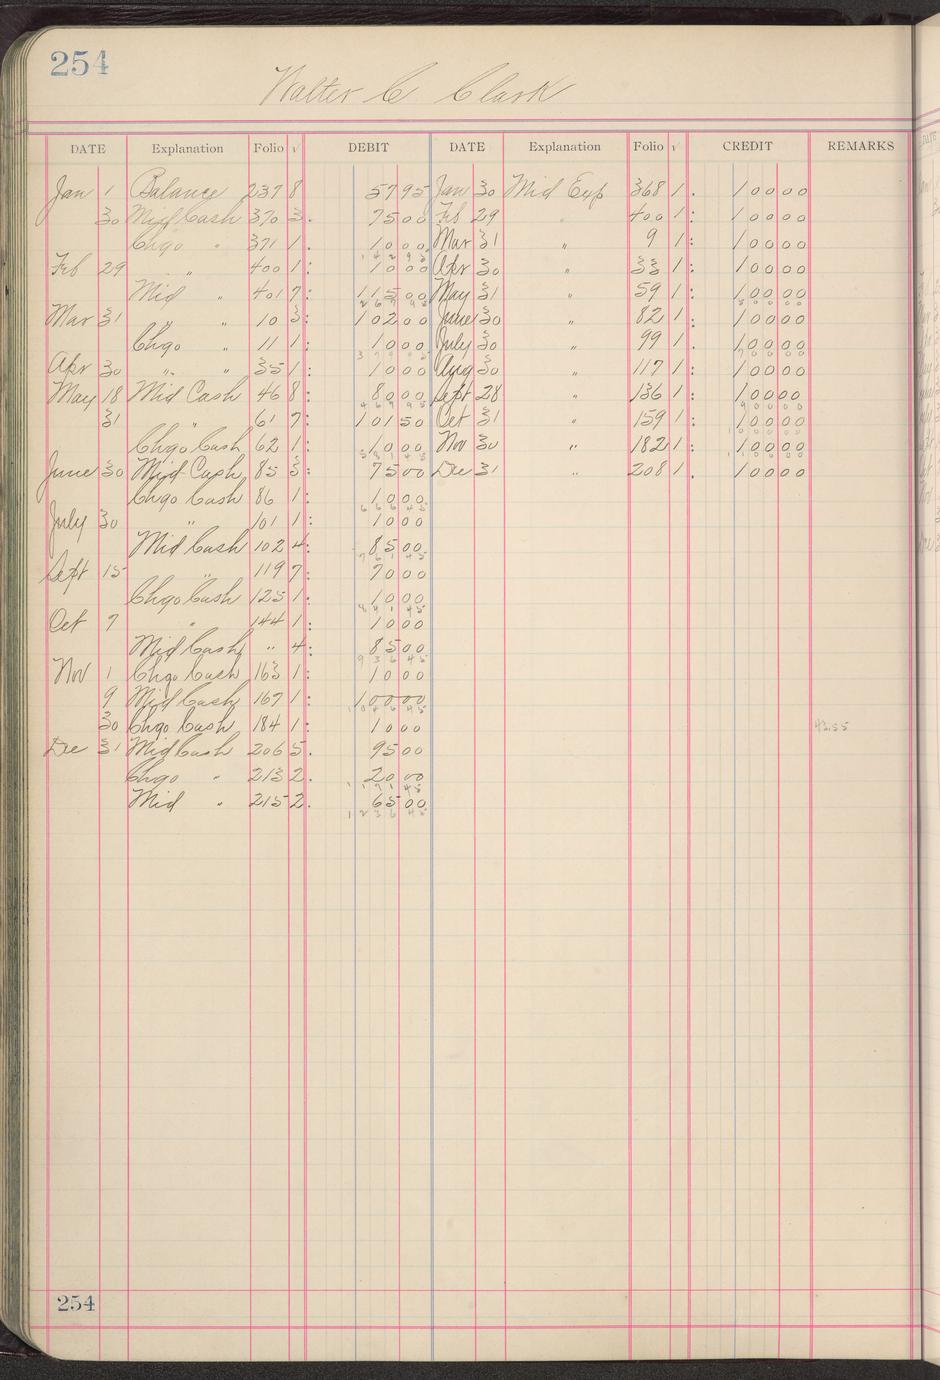 254
Walter C Clark
DATE Explanation Folio √ DEBIT DATE Explanation Folio √ CREDIT REMARKS
Jan 1 Balance 237 8 57 95 Jan 30 Mid Exp 368 1. 100 00
30 Mid Cash 370 3. 75 00 Feb 29 " 400 1: 100 00
Chgo " 371 1. 10 00 Mar 31 " 9 1: 100 00
142 95
Feb 29 " " 400 1: 10 00 Apr 30 " 33 1: 100 00
Mid " 401 7: 115 00 May 31 " 59 1: 100 00
267 95 500 00
Mar 31 " " 10 3: 102 00 June 30 " 82 1: 100 00
Chgo " 11 1: 10 00 July 30 " 99 1. 100 00
379 95 700 00
Apr 30 " " 35 1: 10 00 Aug 30 " 117 1: 100 00
May 18 Mid Cash 46 8: 80 00 Sept 28 " 136 1: 100 00
469 95 900 00
31 " 61 7: 101 50 Oct 31 " 159 1: 100 00
1000 00
Chgo Cash 62 1: 10 00 Nov 30 " 182 1: 100 00
581 45 1100 00
June 30 Mid Cash 85 3: 75 00 Dec 31 " 208 1. 100 00
Chgo Cash 86 1: 10 00
666 45
July 30 " 101 1: 10 00
Mid Cash 102 4: 85 00
761 45
Sept 15 " 119 7: 70 00
Chgo Cash 125 1. 10 00
841 45
Oct 7 " 144 1: 10 00
Mid Cash " 4: 85 00
936 45
Nov 1 Chgo Cash 163 1: 10 00
9 Mid Cash 167 1: 100 00
1046 45
30 Chgo Cash 184 1: 10 00 43.55
Dec 31 Mid Cash 206 5. 95 00
Chgo " 213 2. 20 00
1171 45
Mid " 215 2. 65 00
1236 45
254